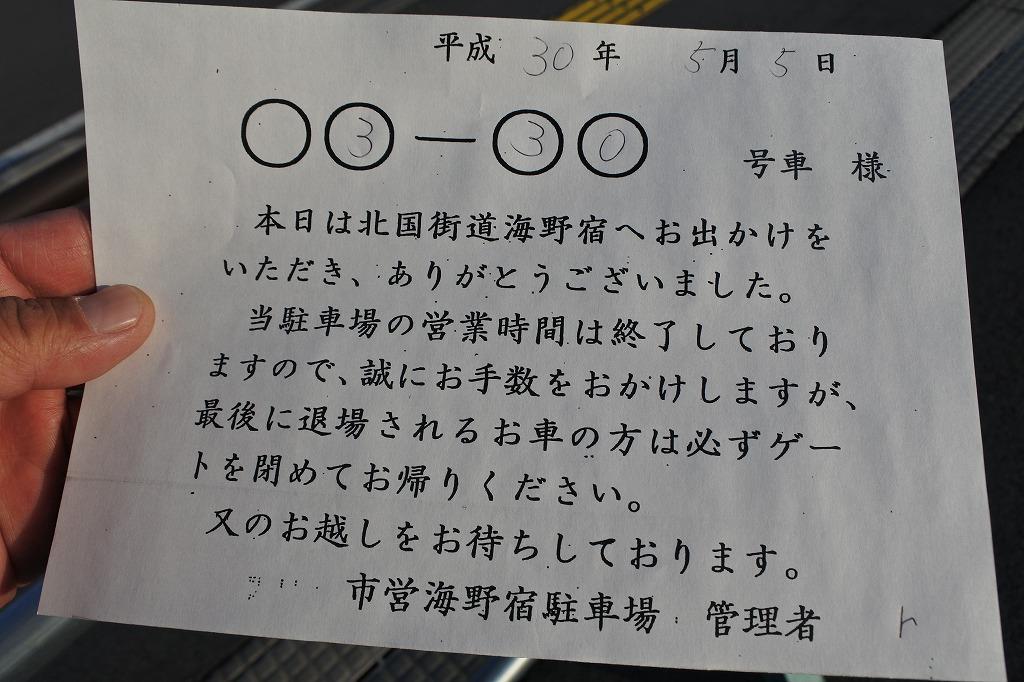 平成 30 年 5月 5日
○③ー③⓪ 号車 様
本日は北国街道海野宿へお出かけを
いただき、ありがとうございました。
当駐車場の営業時間は終了しており
ますので、誠にお手数をおかけしますが、
最後に退場されるお車の方は必ずゲー
トを閉めてお帰りください。
又のお越しをお待ちしております。
市営海野宿駐車場 管理者